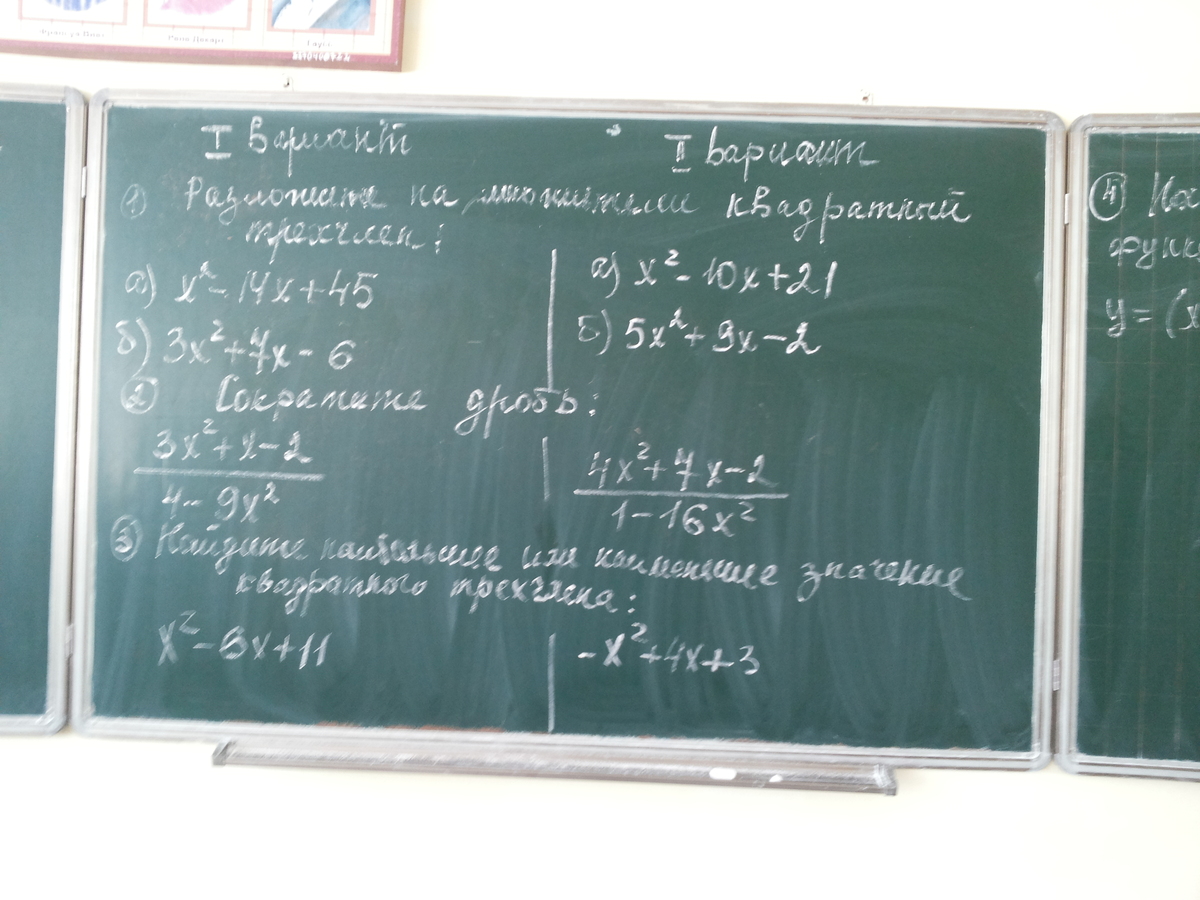 Рене Декарт
Гаусс
I вариант
II вариант
1) Разложите на множители квадратный
трехчлен:
а) x² - 14x + 45
а) x² - 10x + 21
б) 3x² + 7x - 6
б) 5x² + 9x - 2
2 Сократите дробь:
3x² + x - 2
4 - 9x²
4x² + 7x - 2
1 - 16x²
3 Найдите наибольшее или наименьшее значение
квадратного трехчлена:
x² - 6x + 11
-x² + 4x + 3
4
функ
y = (x